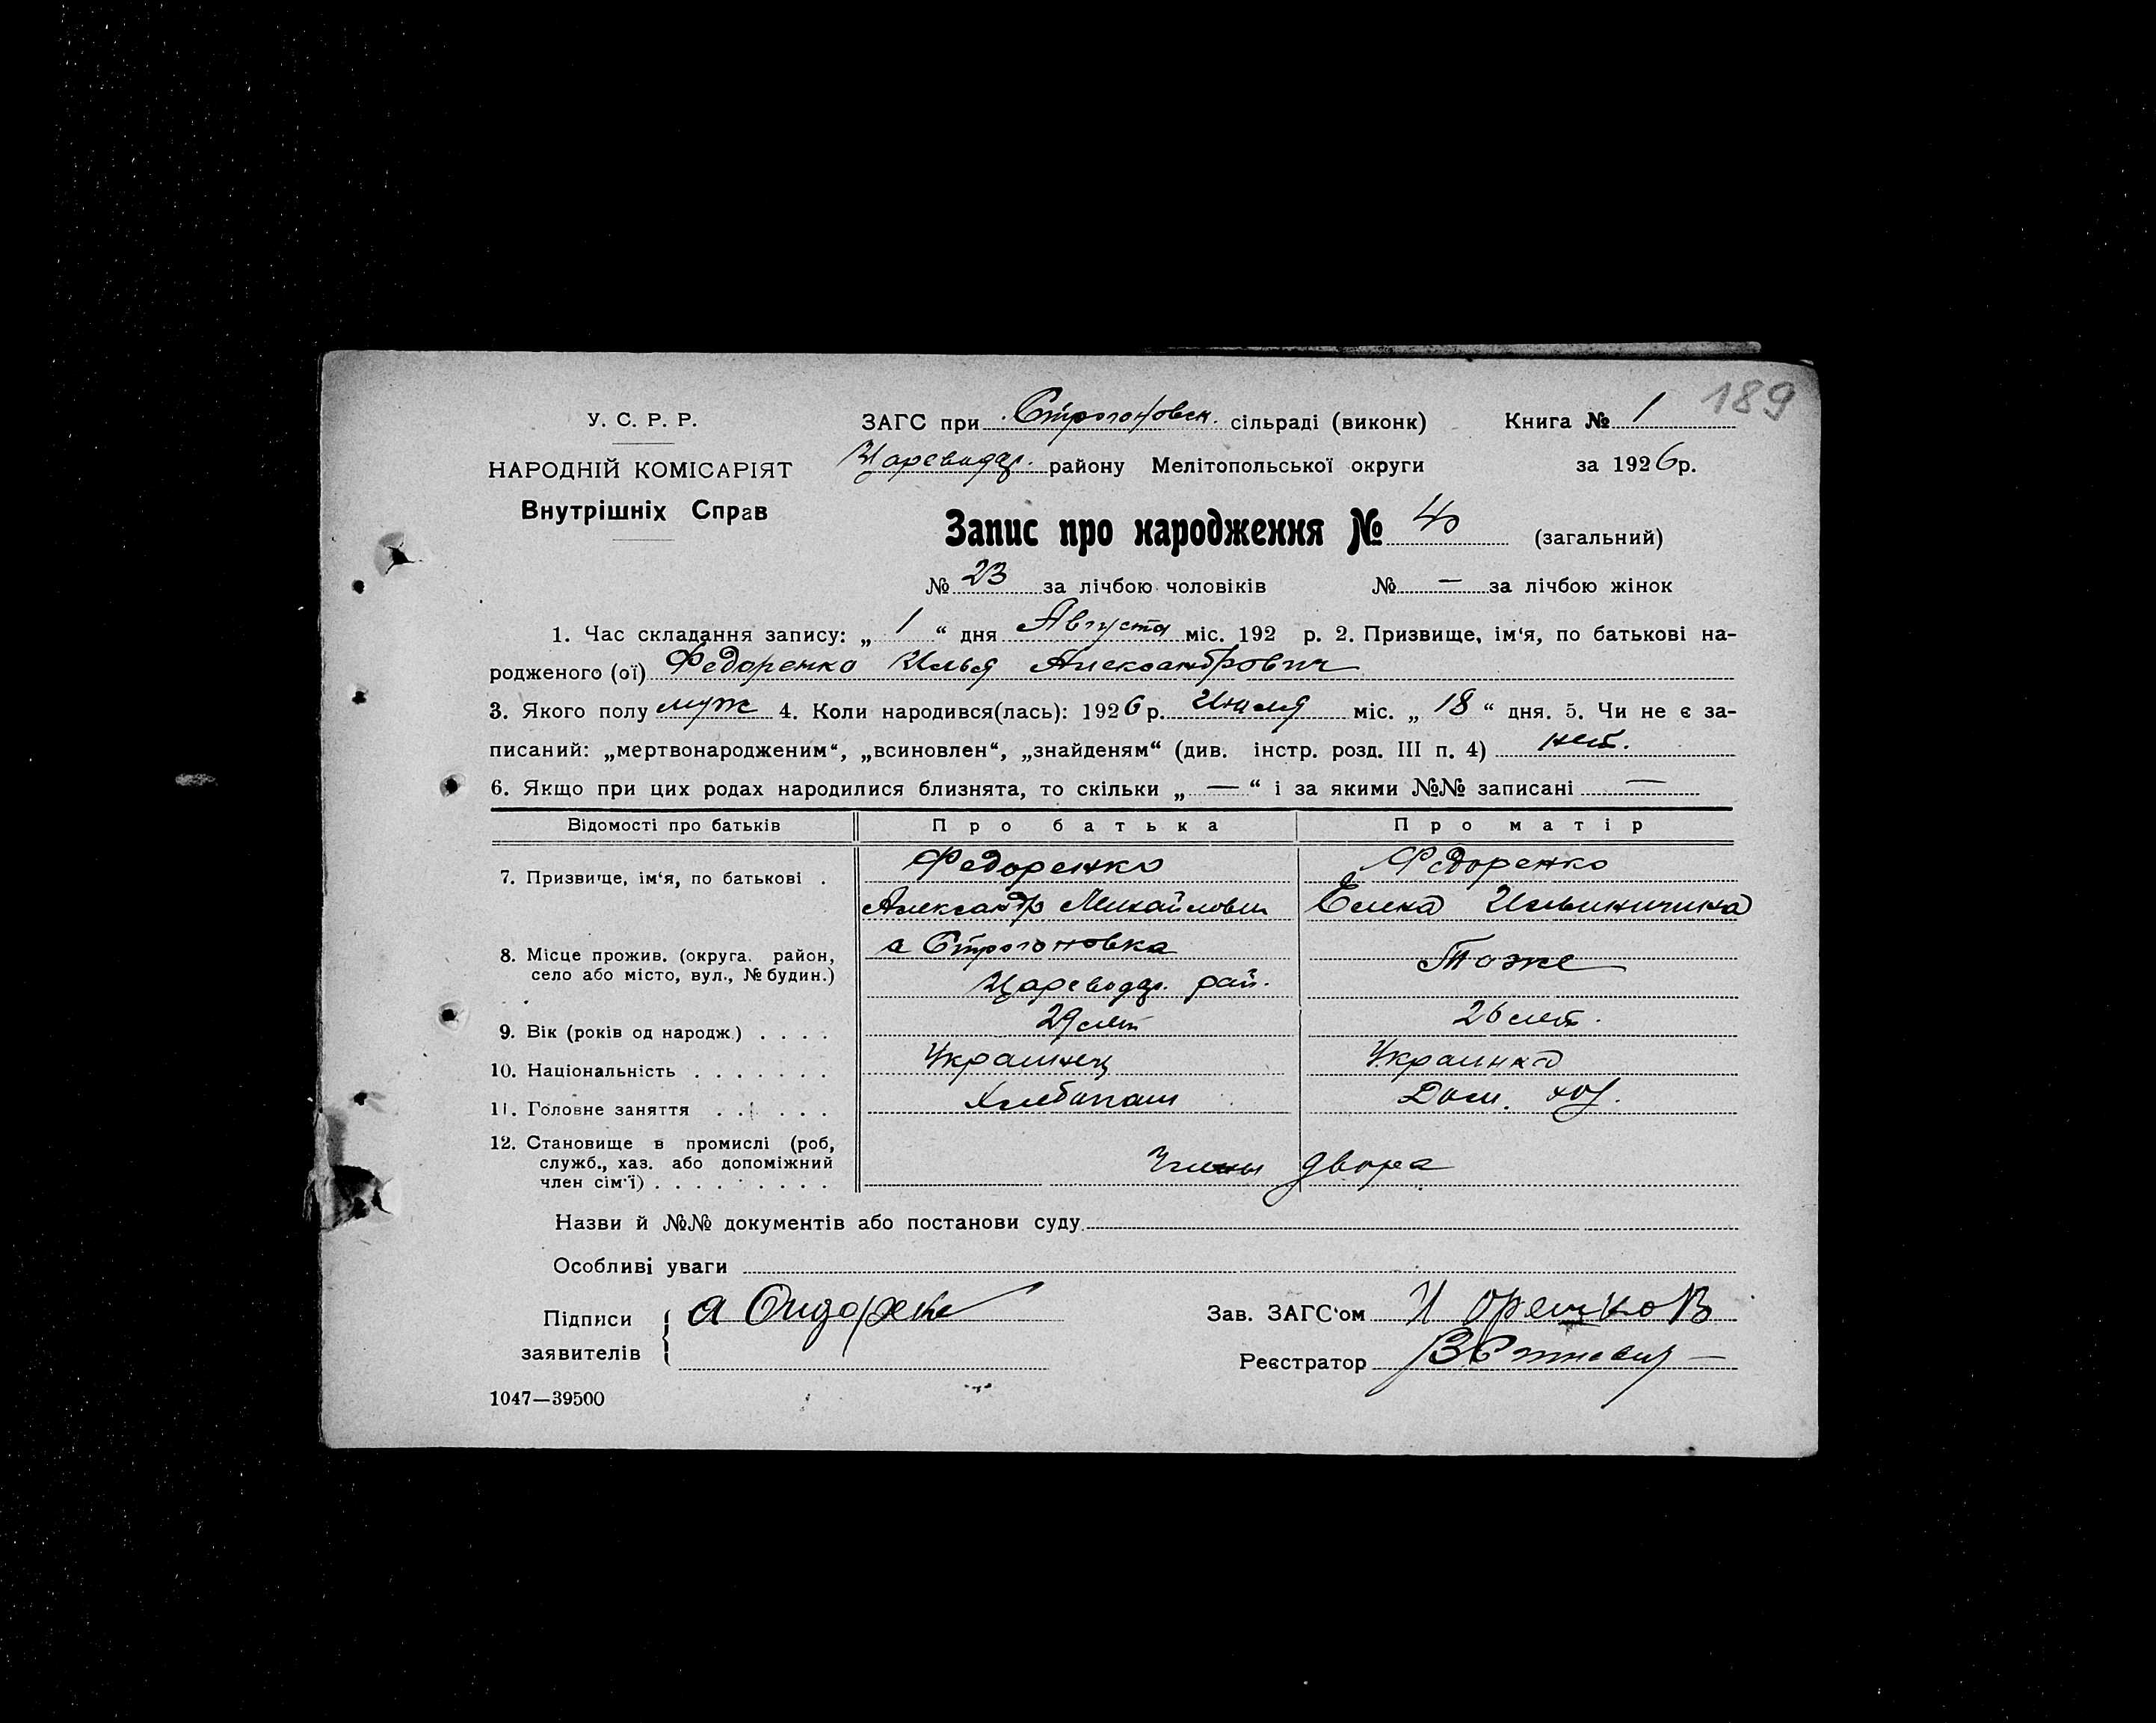 189
У. С. Р. Р.
ЗАГС при Строгоновск. сільраді (виконк) Книга № 1
НАРОДНІЙ КОМІСАРІЯТ
Цареводар. району Мелітопольської округи за 1926 р.
Внутрішніх Справ
Запис про народження № 40 (загальний)
№ 23 за лічбою чоловіків № — за лічбою жінок
1. Час складання запису: „ 1 “ дня Августа міс. 192 р. 2. Призвище, ім‘я, по батькові на-
родженого (ої) Федоренко Илья Александрович
3. Якого полу муж 4. Коли народився(лась): 1926 р. Июля міс. „ 18 “ дня. 5. Чи не є за-
писаний: „мертвонародженим“, „всиновлен“, „знайденям“ (див. інстр. розд. III п. 4) нет.
6. Якщо при цих родах народилися близнята, то скільки „ — “ і за якими №№ записані —
Відомості про батьків Про батька Про матір
7. Призвище, ім‘я, по батькові . Федоренко Федоренко
Александр Михайлович Елена Ильинична
8. Місце прожив. (округа. район, село або місто, вул., № будин.) с Строгоновка Тоже
Цареводар. рай.
9. Вік (років од народж.) . . . . 29 лет 26 лет.
10. Національність . . . . . . . Украинец Украинка
11. Головне заняття . . . . . . Хлебопаш Дом. хоз.
12. Становище в промислі (роб,
служб., хаз. або допоміжний Члены двора
член сім‘ї) . . . . . . . . .
Назви й №№ документів або постанови суду
Особливі уваги
Підписи
заявителів
Зав. ЗАГС‘ом
Реєстратор
1047—39500